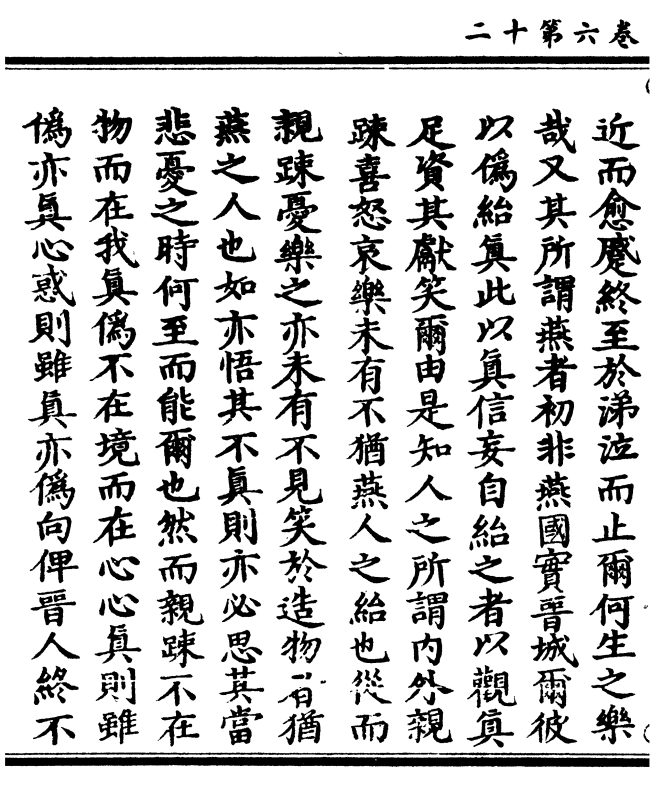 卷六第十二
近而愈蹙終至於涕泣而止爾何生之樂
哉又其所謂燕者初非燕國實晉城爾彼
以僞紿眞此以眞信妄自紿之者以觀眞
足資其獻笑爾由是知人之所謂內外親
踈喜怒哀樂未有不猶燕人之紿也從而
親踈憂樂之亦未有不見笑於造物者猶
燕之人也如亦悟其不眞則亦必思其當
悲憂之時何至而能爾也然而親踈不在
物而在我眞僞不在境而在心心眞則雖
僞亦眞心惑則雖眞亦僞向俾晉人終不